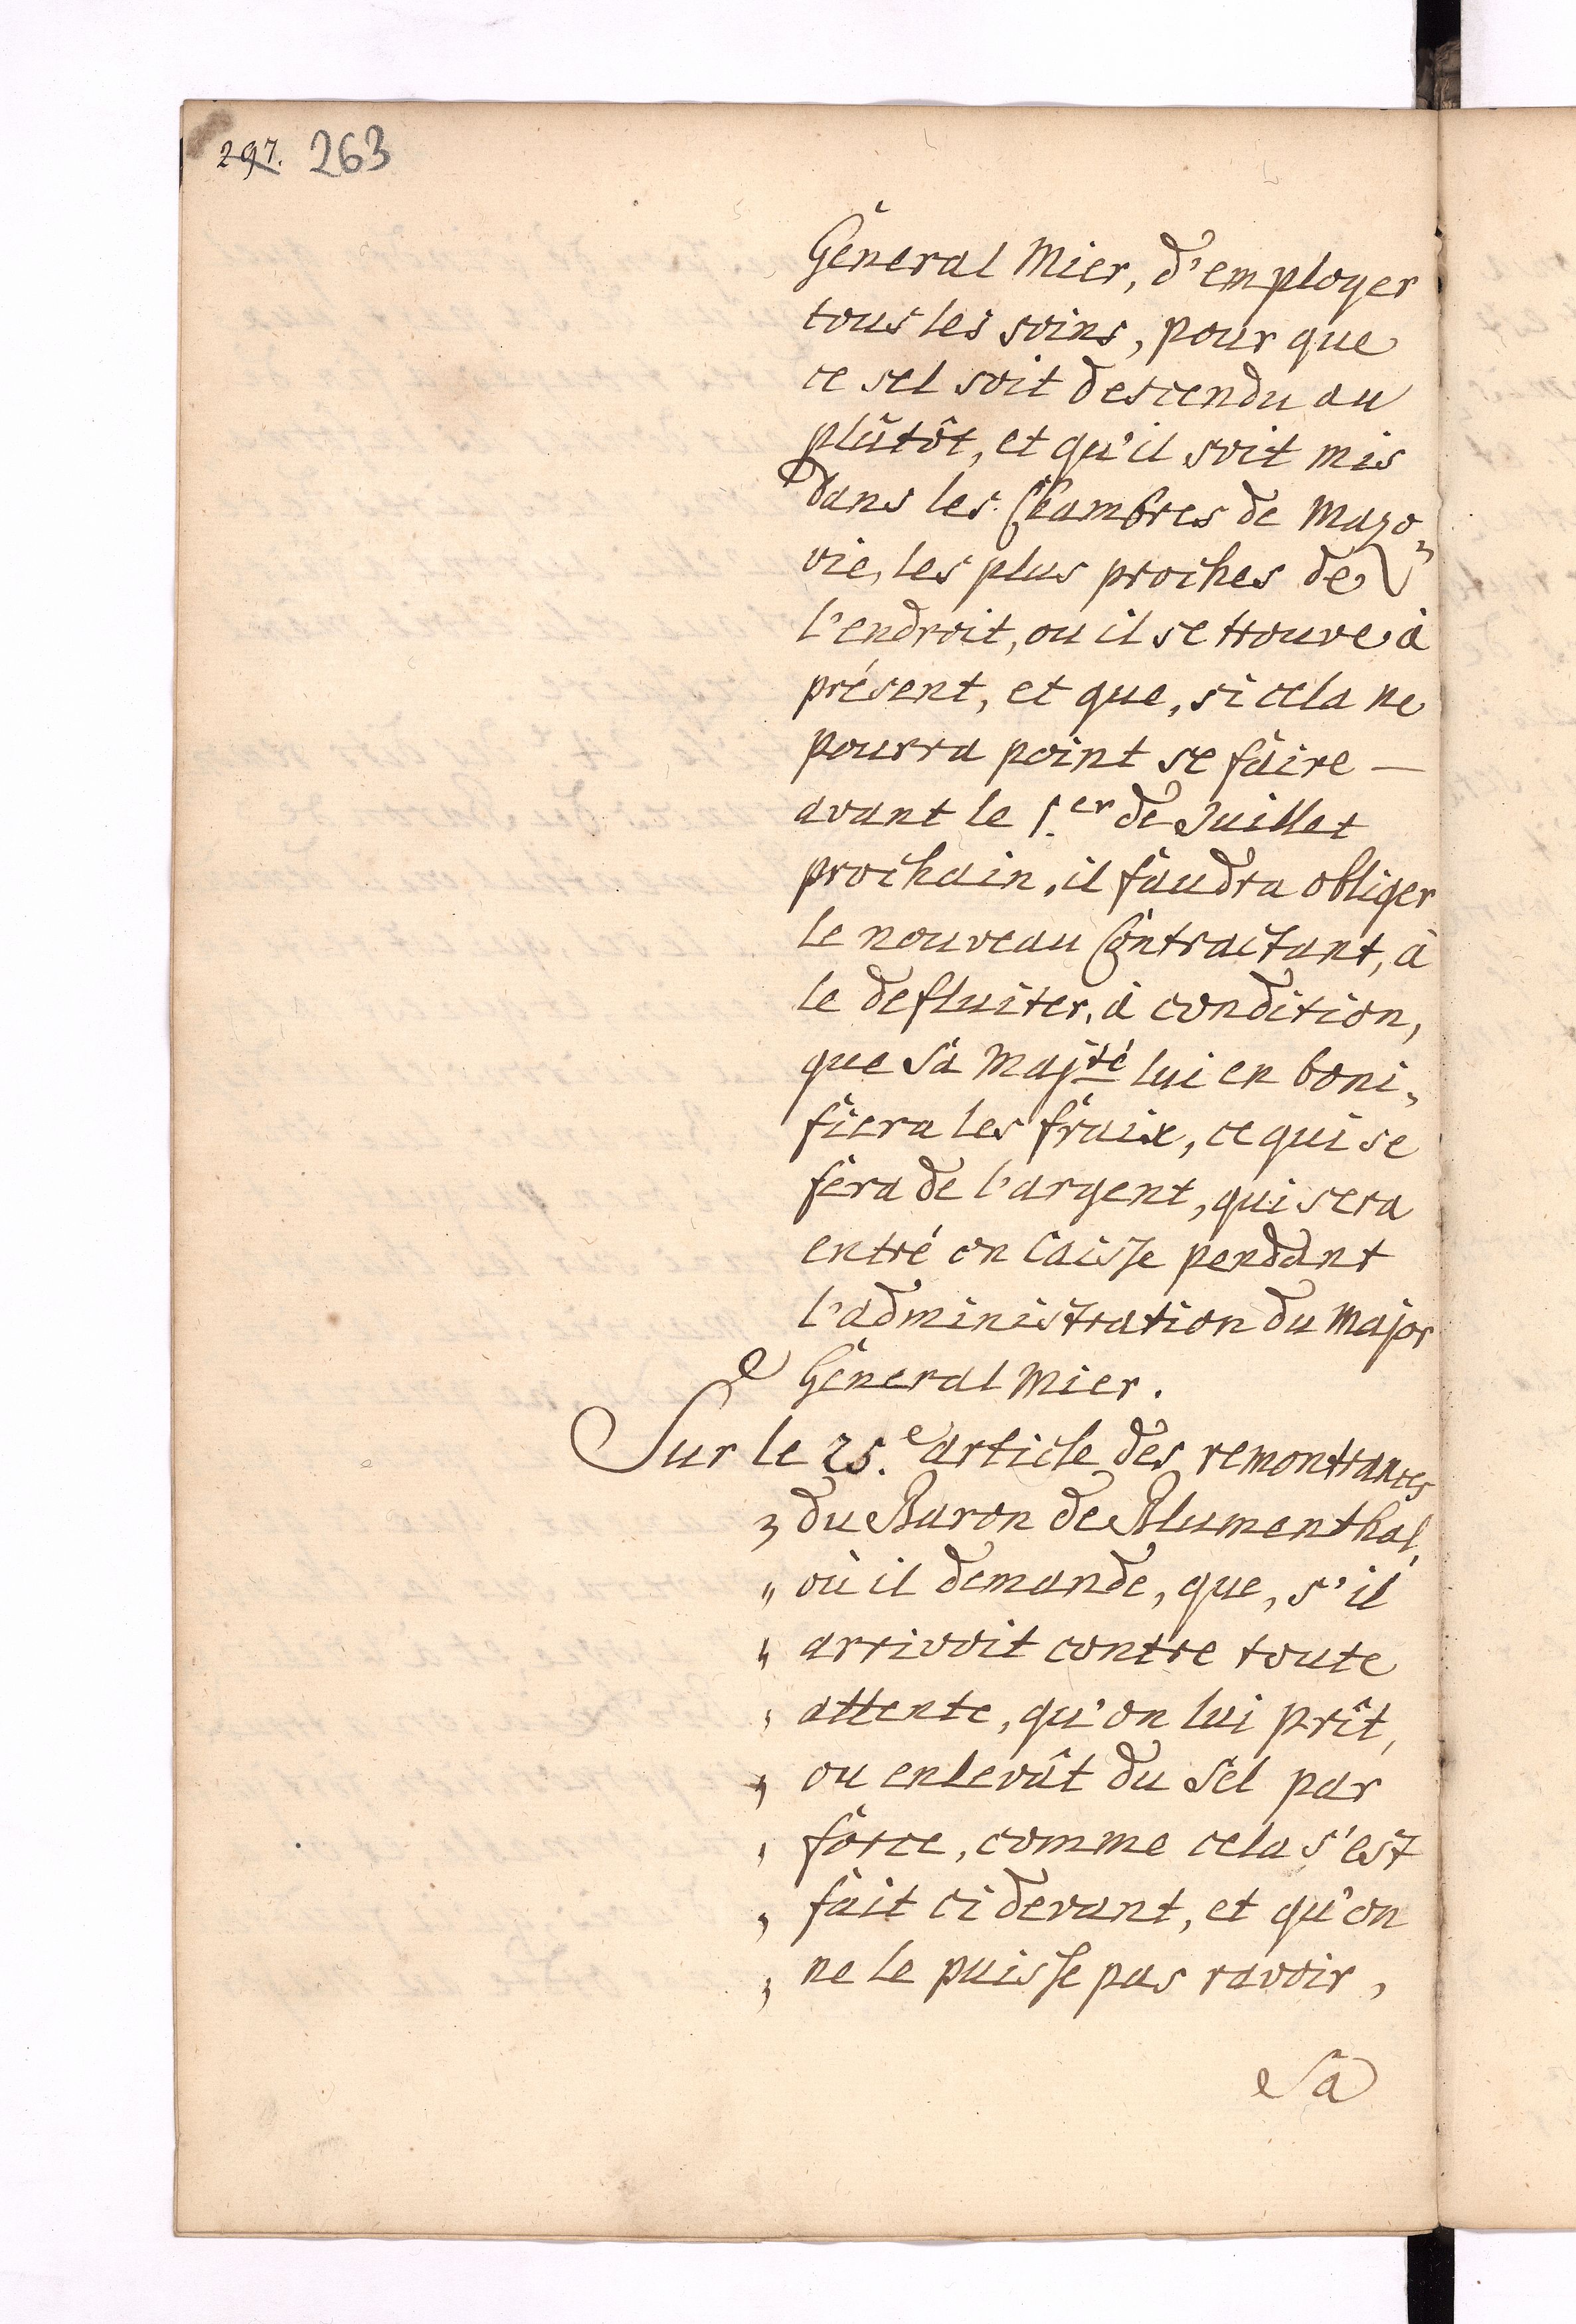 297. 263
Géneral Mier, d'employer
tous les soins, pour que
ce sel soit descendu au
plûtôt, et qu'il soit mis
dans les Chambres de Mazo„
vie, les plus proches de
l'endroit, ou il se trouve à
présent, et que, si cela ne
pourra point se faire —
avant le 1.er de Juillet
prochain, il faudra obliger
le nouveau Contractant, à
le defluiter, à condition,
que Sa Majté lui en boni„
fiera les fraix, ce qui se
fera de l'argent, qui sera
entré en Caisse pendant
l'administration du Major
Géneral Mier.
Sur le 25.e article des remontrances
„ du Baron de Blumenthal,
„ où il demande, que, s'il
„ arrivoit contre toute
„ attente, qu'on lui prît,
„ ou enlevât du Sel par
„ force, comme cela s'est
„ fait ci devant, et qu'on
„ ne le puisse pas ravoir,
Sa